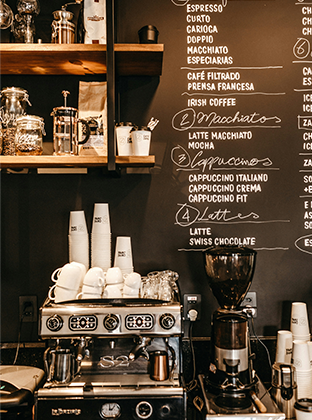 ESPRESSO
CURTO
CARIOCA
DOPPIO
MACCHIATO
ESPECIARIAS
CAFÉ FILTRADO
PRENSA FRANCESA
IRISH COFFEE
2 Macchiatos
LATTE MACCHIATO
MOCHA
3 Cappuccinos
CAPPUCCINO ITALIANO
CAPPUCCINO CREMA
CAPPUCCINO FIT
4 Lattes
LATTE
SWISS CHOCOLATE